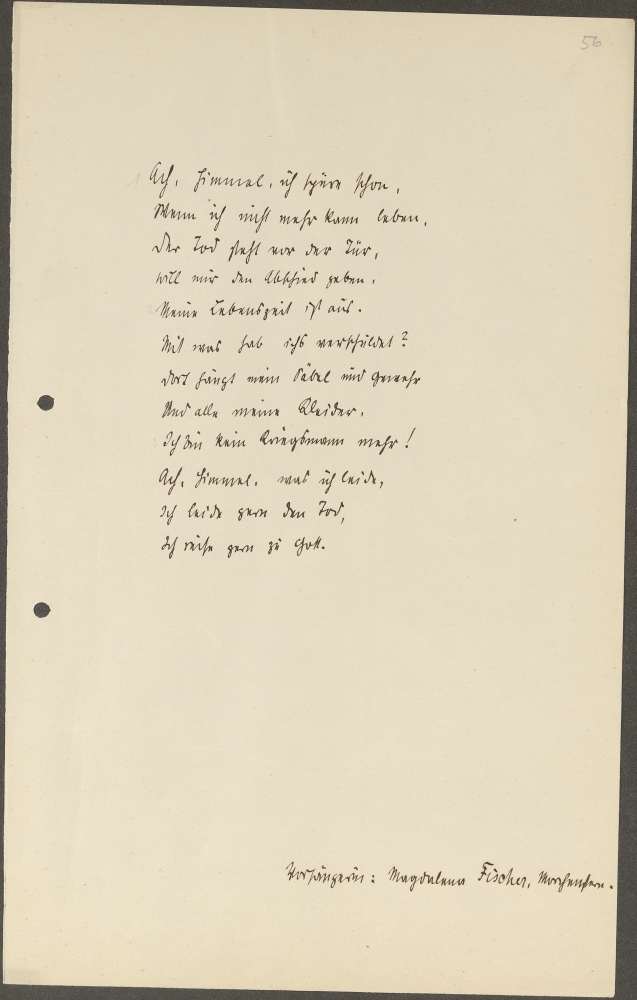 56
Ach, Himmel, ich spüre schon,
Wenn ich nicht mehr kann leben,
Der Tod steht vor der Tür,
will mir den Abschied geben.
Meine Lebenszeit ist aus.
Mit was hab ichs verschuldet?
Dort hängt mein Säbel und Gewehr
Und alle meine Kleider,
Ich bin kein Kriegsmann mehr!
Ach, Himmel, was ich leide,
Ich leide gern den Tod,
Ich reise gern zu Gott.
Vorsängerin: Magdalena Fischer, Morchenstern.